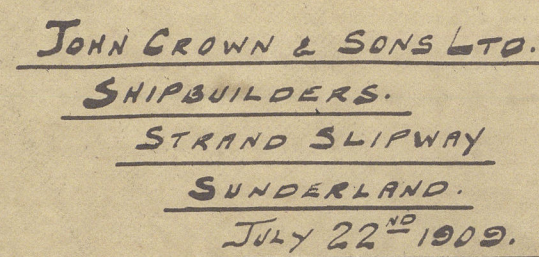 JOHN CROWN & SONS LTD.
SHIPBUILDERS.
STRAND SLIPWAY
SUNDERLAND.
JULY 22ND 1909.